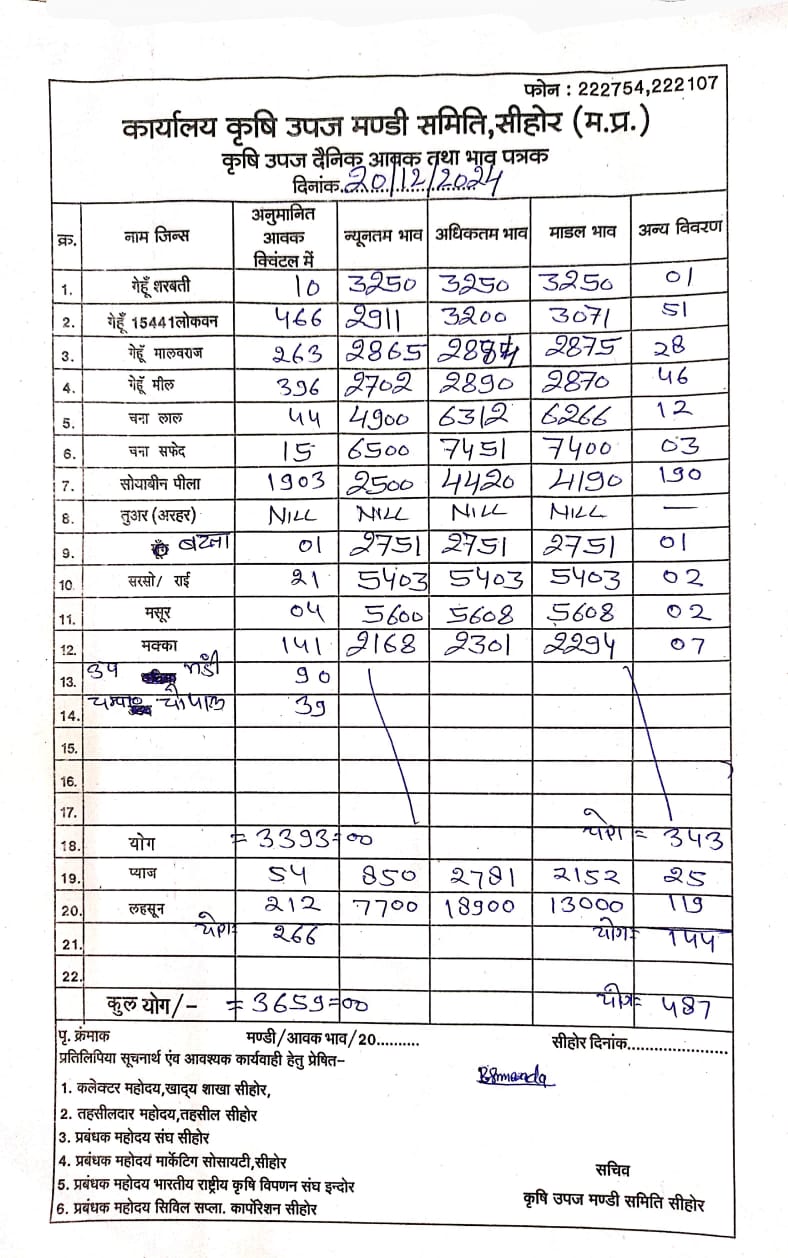 फोन : 222754,222107
कार्यालय कृषि उपज मण्डी समिति,सीहोर (म.प्र.)
कृषि उपज दैनिक आवक तथा भाव पत्रक
दिनांक.20/12/2024
क्र. नाम जिन्स अनुमानित आवक क्विंटल में न्यूनतम भाव अधिकतम भाव माडल भाव अन्य विवरण
1. गेहूँ शरबती 10 3250 3250 3250 01
2. गेहूँ 15441लोकवन 466 2911 3200 3071 51
3. गेहूँ मालवराज 263 2865 2875 28
4. गेहूँ मील 396 2702 2890 2870 46
5. चना लाल 44 4900 6312 6266 12
6. चना सफेद 15 6500 7451 7400 03
7. सोयाबीन पीला 1903 2500 4420 4190 190
8. तुअर (अरहर) NILL NILL NILL NILL —
9. बटला 01 2751 2751 2751 01
10. सरसो/ राई 21 5403 5403 5403 02
11. मसूर 04 5600 5608 5608 02
12. मक्का 141 2168 2301 2294 07
13. उप मंडी 90
14. चौपाल 39
15.
16.
17.
18. योग = 3393=00 योग = 343
19. प्याज 54 850 2781 2152 25
20. लहसून 212 7700 18900 13000 119
21. योग= 266 योग= 144
22.
कुल योग/- =3659=00 योग= 487
पृ. क्रंमाक मण्डी/आवक भाव/20.......... सीहोर दिनांक......................
प्रतिलिपिया सूचनार्थ एंव आवश्यक कार्यवाही हेतु प्रेषित–
1. कलेक्टर महोदय,खाद्य शाखा सीहोर,
2. तहसीलदार महोदय,तहसील सीहोर
3. प्रबंधक महोदय संघ सीहोर
4. प्रबंधक महोदय मार्केटिग सोसायटी,सीहोर
5. प्रबंधक महोदय भारतीय राष्ट्रीय कृषि विपणन संघ इन्दोर
6. प्रबंधक महोदय सिविल सप्ला. कार्पोरेशन सीहोर
सचिव
कृषि उपज मण्डी समिति सीहोर